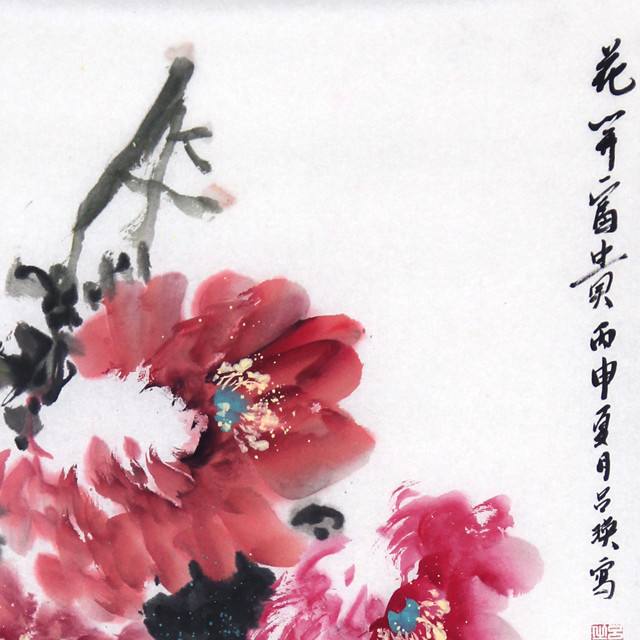 花开富贵丙申夏月吕瑛写